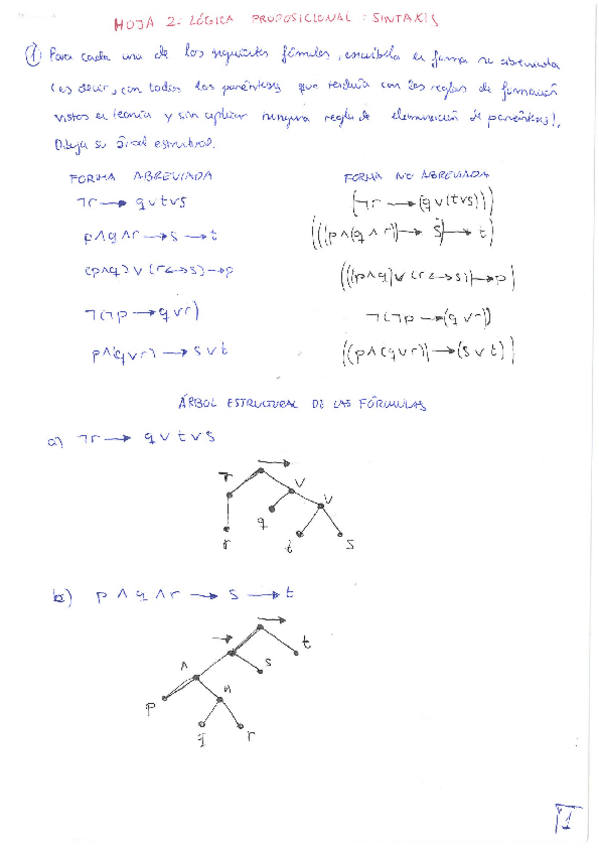 HOJA 2: LÓGICA PROPOSICIONAL: SINTAXIS
① Para cada una de las siguientes fórmulas, escríbela en forma no abreviada
(es decir, con todos los paréntesis que tendría con las reglas de formación
vistas en teoría y sin aplicar ninguna regla de eliminación de paréntesis).
Dibuja su árbol estructural.
FORMA ABREVIADA FORMA NO ABREVIADA
¬r → q∨t∨s (¬r → (q∨(t∨s)))
p∧q∧r → s → t (((p∧(q∧r)) → s) → t)
(p∧q)∨(r↔s)→p (((p∧q)∨(r↔s))→p)
¬(¬p → q∨r) ¬(¬p → (q∨r))
p∧(q∨r) → s∨t ((p∧(q∨r)) → (s∨t))
ÁRBOL ESTRUCTURAL DE LAS FÓRMULAS
a) ¬r → q∨t∨s
→
¬ ∨
∨
q
r t s
b) p∧q∧r → s → t
→
→ t
∧ s
∧
p
q r
1